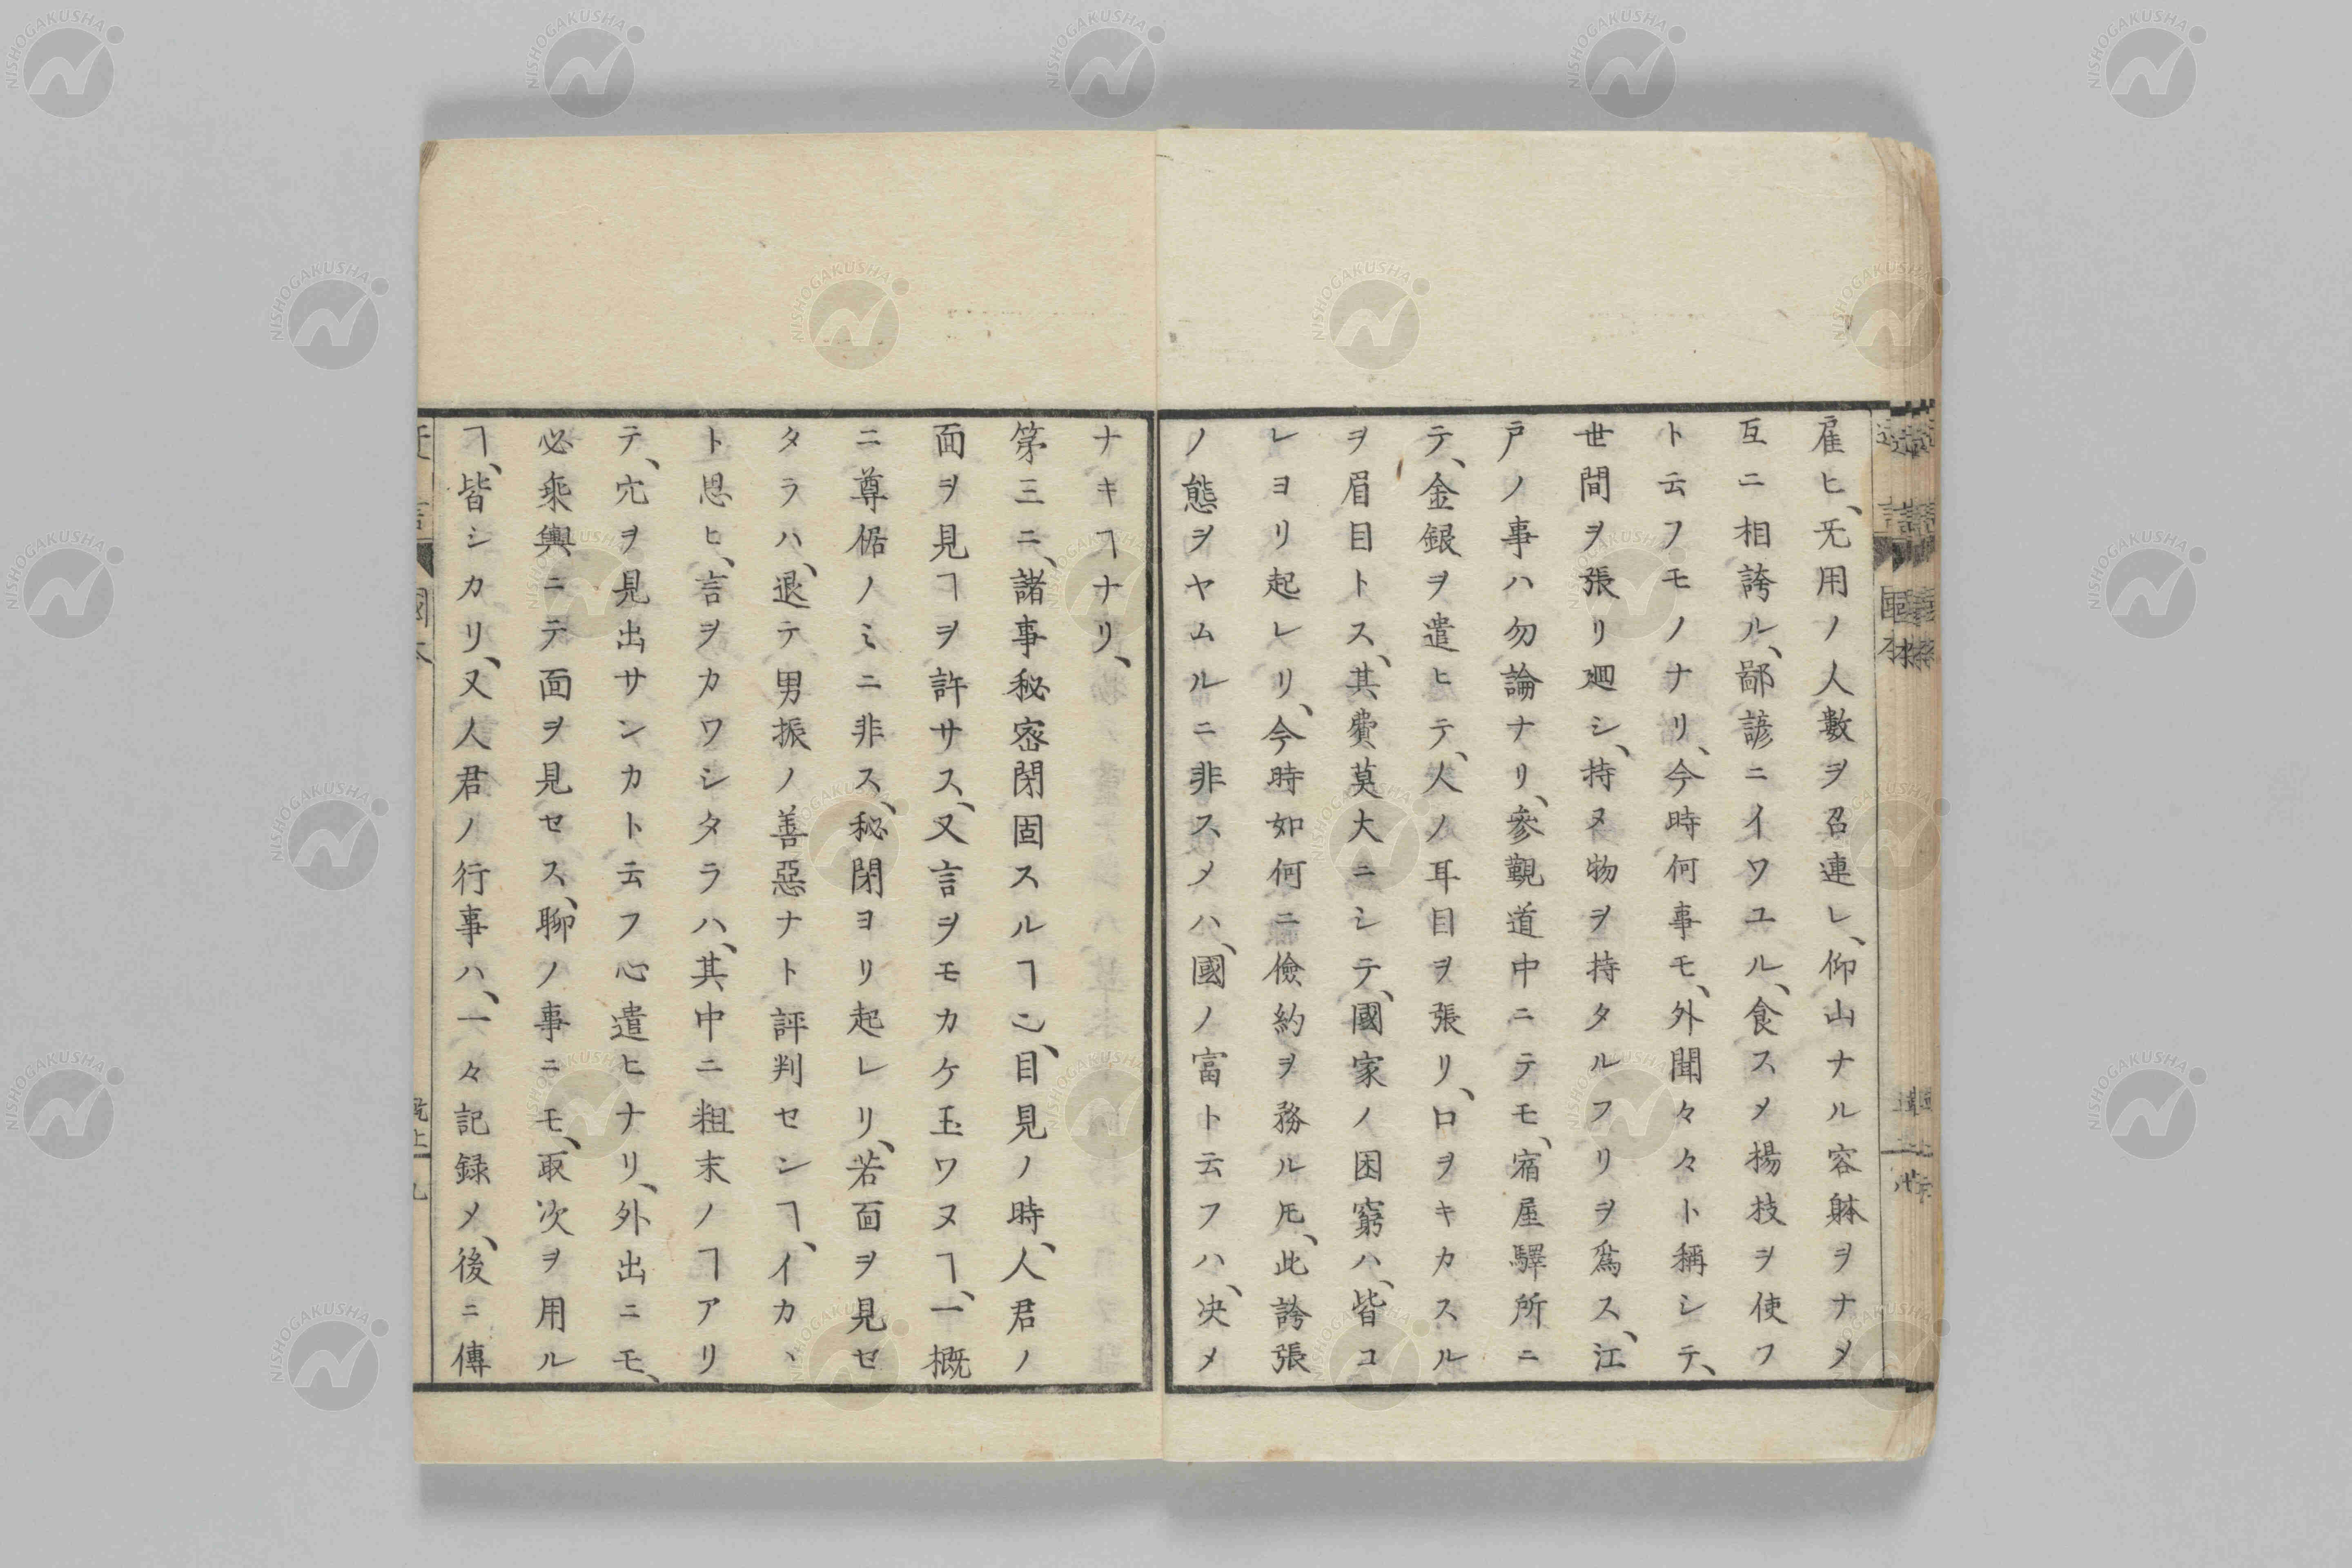 雇ヒ、无用ノ人數ヲ召連レ、仰山ナル容躰ヲナメ
互ニ相誇ル、鄙諺ニイワユル、食スメ揚枝ヲ使フ
ト云フモノナリ、今時何事モ、外聞々々ト稱シテ、
世間ヲ張リ廻シ、持ヌ物ヲ持タルフリヲ爲ス、江
戸ノ事ハ勿論ナリ、參觀道中ニテモ、宿屋驛所ニ
テ、金銀ヲ遣ヒテ、人ノ耳目ヲ張リ、口ヲキカスル
ヲ眉目トス、其費莫大ニシテ、國家ノ困窮ハ、皆コ
レヨリ起レリ、今時如何ニ儉約ヲ務ルㇳモ、此誇張
ノ態ヲヤムルニ非スメハ、國ノ富ト云フハ、决メ
ナキヿナリ、
第三ニ、諸事秘密閉固スルヿニ、目見ノ時、人君ノ
面ヲ見ヿヲ許サス、又言ヲモカケ玉ワヌヿ、一概
ニ尊倨ノミニ非ス、秘閉ヨリ起レリ、若面ヲ見セ
タラハ、退テ男振ノ善惡ナト評判センヿ、イカヽ
ト思ヒ、言ヲカワシタラハ、其中ニ粗末ノヿアリ
テ、穴ヲ見出サンカト云フ心遣ヒナリ、外出ニモ、
必乘輿ニテ面ヲ見セス、聊ノ事ニモ、取次ヲ用ル
ヿ、皆シカリ、又人君ノ行事ハ、一々記録メ、後ニ傳